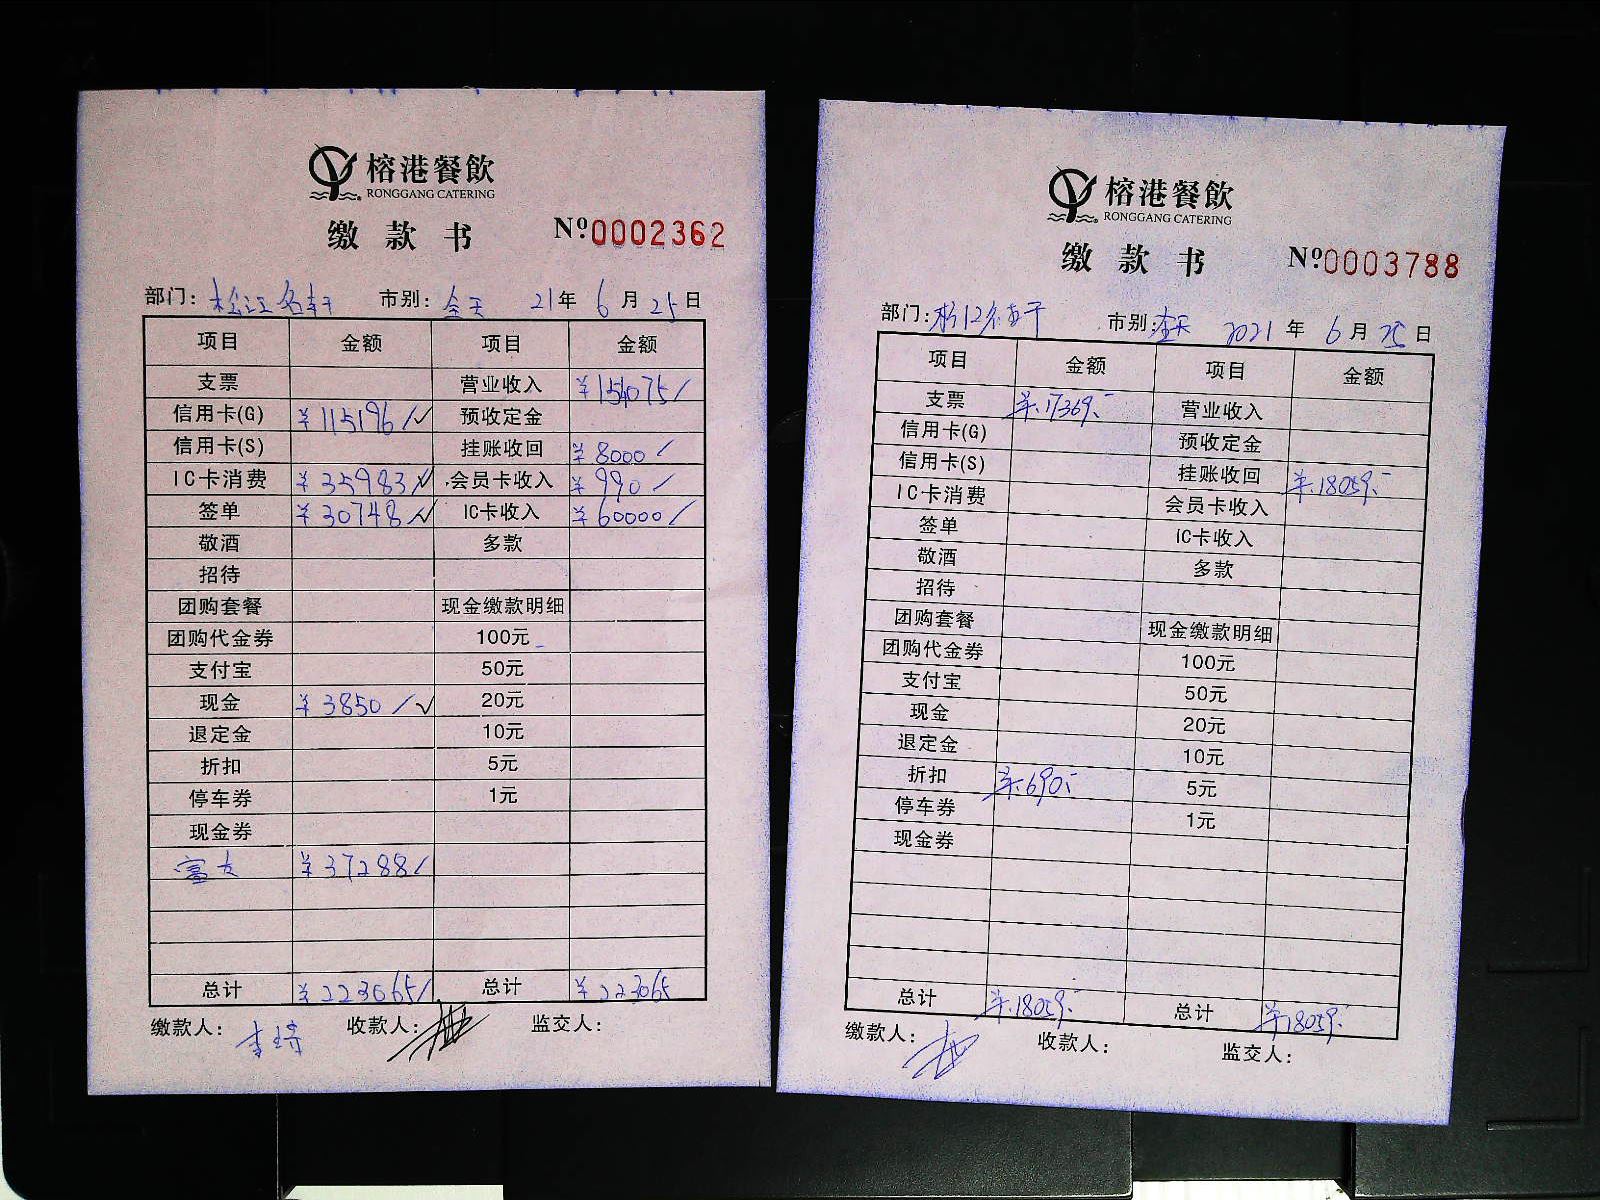 榕港餐飲
RONGGANG CATERING
缴款书 Nº0002362
部门：松江名轩 市别：全天 21年6月25日
项目 金额 项目 金额
支票 营业收入 ¥154075/
信用卡(G) ¥115196/✓ 预收定金
信用卡(S) 挂账收回 ¥8000/
IC卡消费 ¥35983/✓ 会员卡收入 ¥990/
签单 ¥30748/✓ IC卡收入 ¥60000/
敬酒 多款
招待
团购套餐 现金缴款明细
团购代金券 100元
支付宝 50元
现金 ¥3850/✓ 20元
退定金 10元
折扣 5元
停车券 1元
现金券
¥37288/
总计 ¥223065/ 总计 ¥223065
缴款人： 收款人： 监交人：
榕港餐飲
RONGGANG CATERING
缴款书 Nº0003788
部门：松江名轩 市别：全天 2021年6月25日
项目 金额 项目 金额
支票 ¥17369.- 营业收入
信用卡(G) 预收定金
信用卡(S) 挂账收回 ¥18059.-
IC卡消费 会员卡收入
签单 IC卡收入
敬酒 多款
招待
团购套餐 现金缴款明细
团购代金券 100元
支付宝 50元
现金 20元
退定金 10元
折扣 ¥690.- 5元
停车券 1元
现金券
总计 ¥18059.- 总计 ¥18059.-
缴款人： 收款人： 监交人：